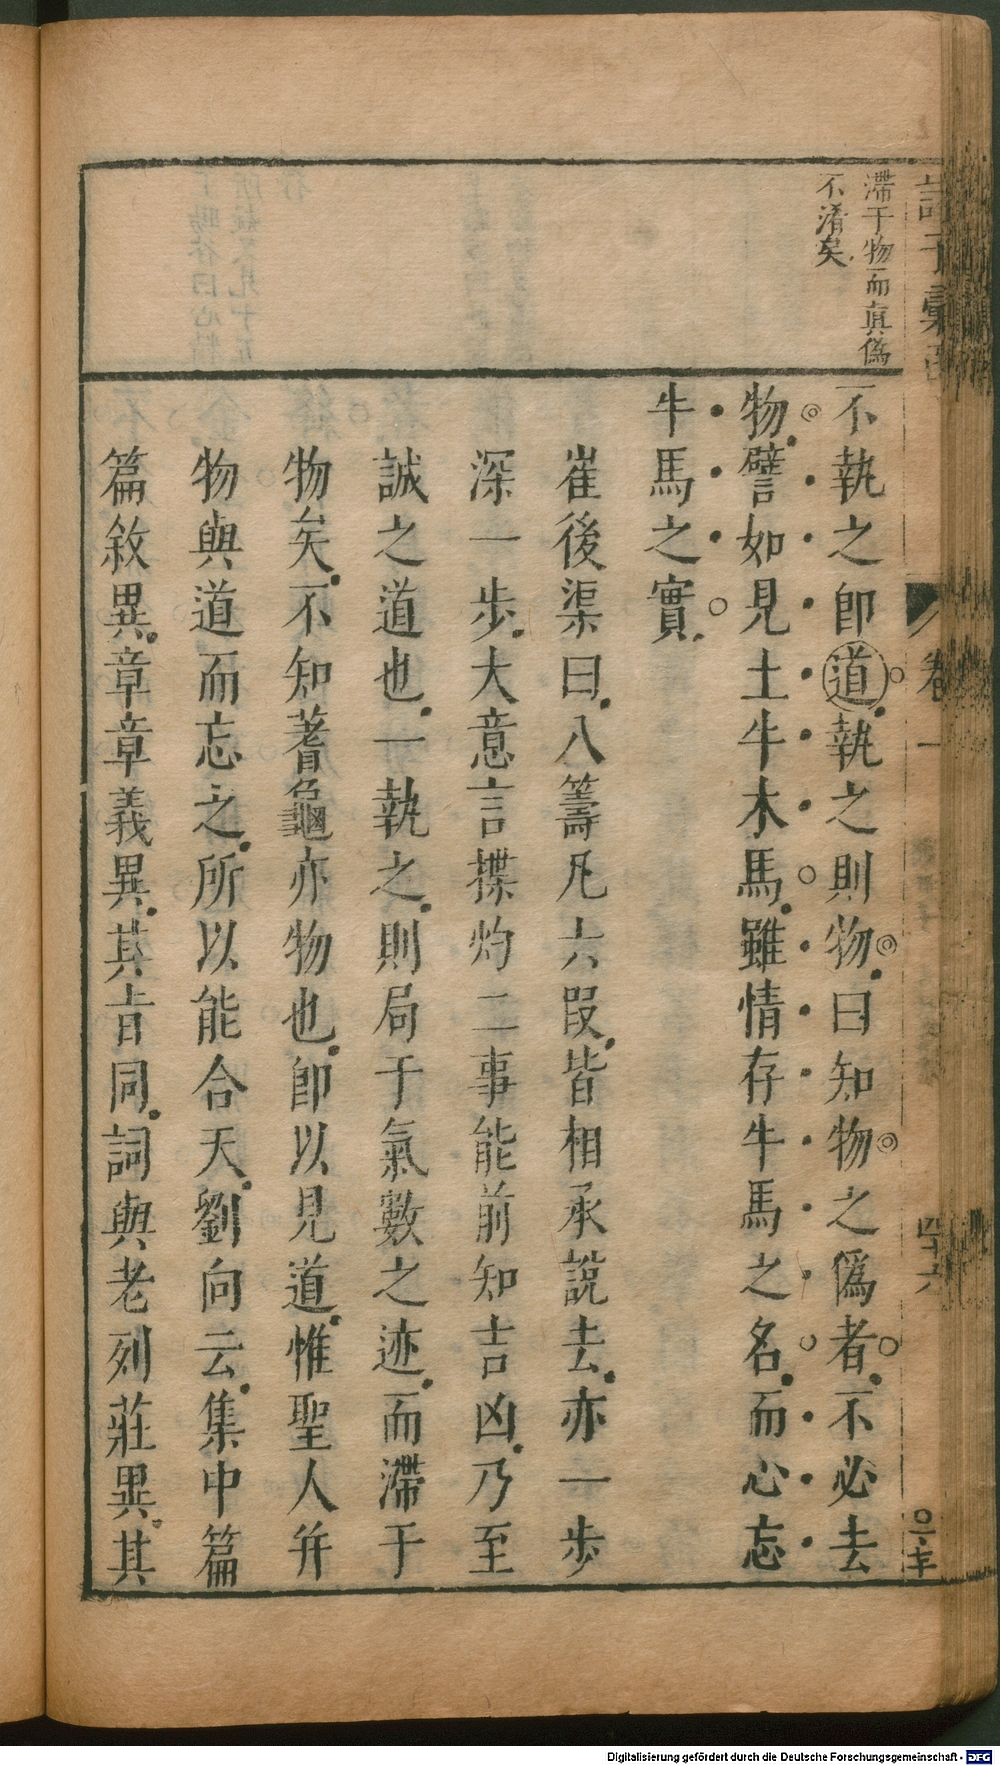 滯于物而真偽
不淆矣
不執之即道執之則物曰知物之偽者不必去
物譬如見土牛木馬雖情存牛馬之名而心忘
牛馬之實
崔後渠曰八籌凡六段皆相承說去亦一步
深一步大意言揲灼二事能前知吉凶乃至
誠之道也一執之則局于氣數之迹而滯于
物矣不知蓍龜亦物也即以見道惟聖人并
物與道而忘之所以能合天劉向云集中篇
篇敘異章章義異其旨同詞與老列莊異其
卷一
四十六
Digitalisierung gefördert durch die Deutsche Forschungsgemeinschaft - DFG